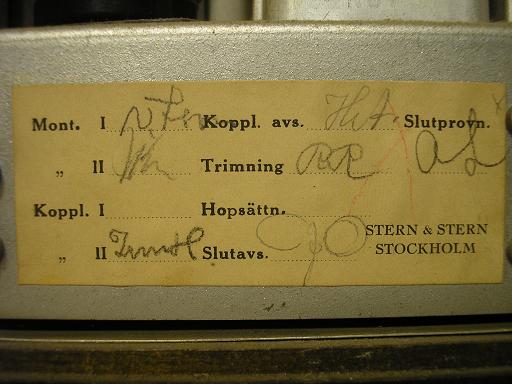 Mont. I Koppl. avs. H.A. Slutprovn.
„ II Trimning BR AL
Koppl. I Hopsättn.
„ II Slutavs. STERN & STERN
STOCKHOLM